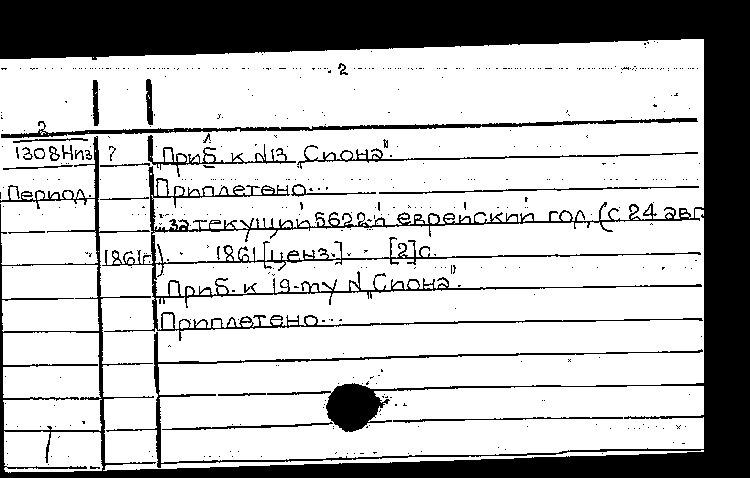 2
2
1308 Низ ? „Приб. к №13 „Сиона".
Период. Приплетено...
за текущий 5622-й еврейский год, (с 24 авг.
1861г.). 1861 [ценз.]. [2]с.
„Приб. к 19-му № „Сиона".
Приплетено...